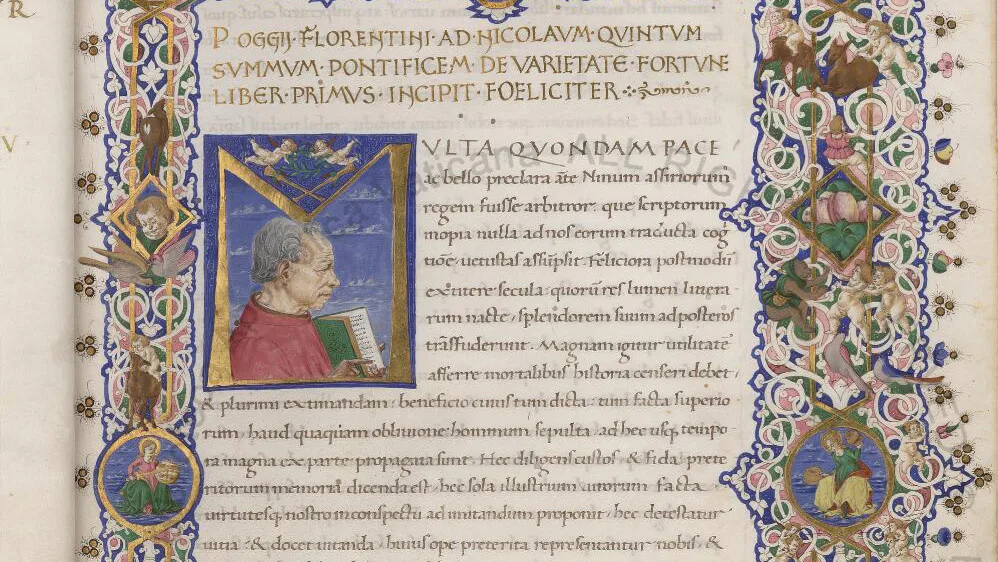 R
V
POGGII·FLORENTINI·AD·NICOLAVM·QVINTVM
SVMMVM·PONTIFICEM·DE VARIETATE·FORTVNE
LIBER·PRIMVS·INCIPIT·FOELICITER
MVLTA QVONDAM PACE
ac bello preclara añte Ninum assiriorum
regem fuisse arbitror: que scriptorum
inopia nulla ad nos eorum traducta cog
tiõe uetustas assũpsit. Feliciora postmodũ
extitere secula: quorũ res lumen littera
rum nacte, splendorem suum ad posteros
trãsfuderunt. Magnam igitur utilitatẽ
afferre mortalibus historia censeri debet,
& plurimi extimandam: beneficio cuius tum dicta: tum facta superio
rum, haud quaquam obliuione hominum sepulta, ad hec usq tempo
ra magna ex parte propagata sunt. Hec diligens custos & fida prete
ritorum memoriã dicenda est, hec sola illustrium uirorum facta
uirtutesq nostro in conspectu ad imitandum proponit, hec detestatur
uitia, & docet uitanda, huius ope preterita representantur nobis, &
aticana ALL RIG